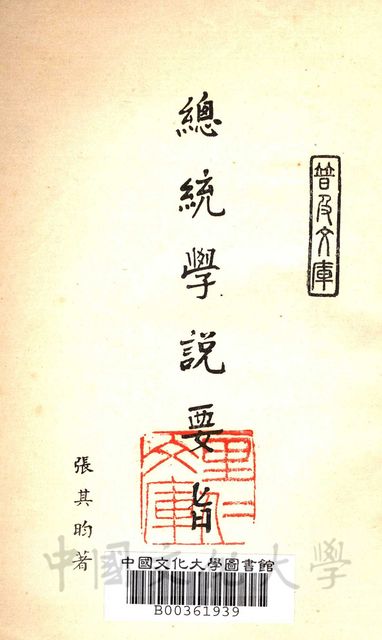 普及文庫
總統學說要旨
張其昀著
中國文化大學
中國文化大學圖書館
B00361939